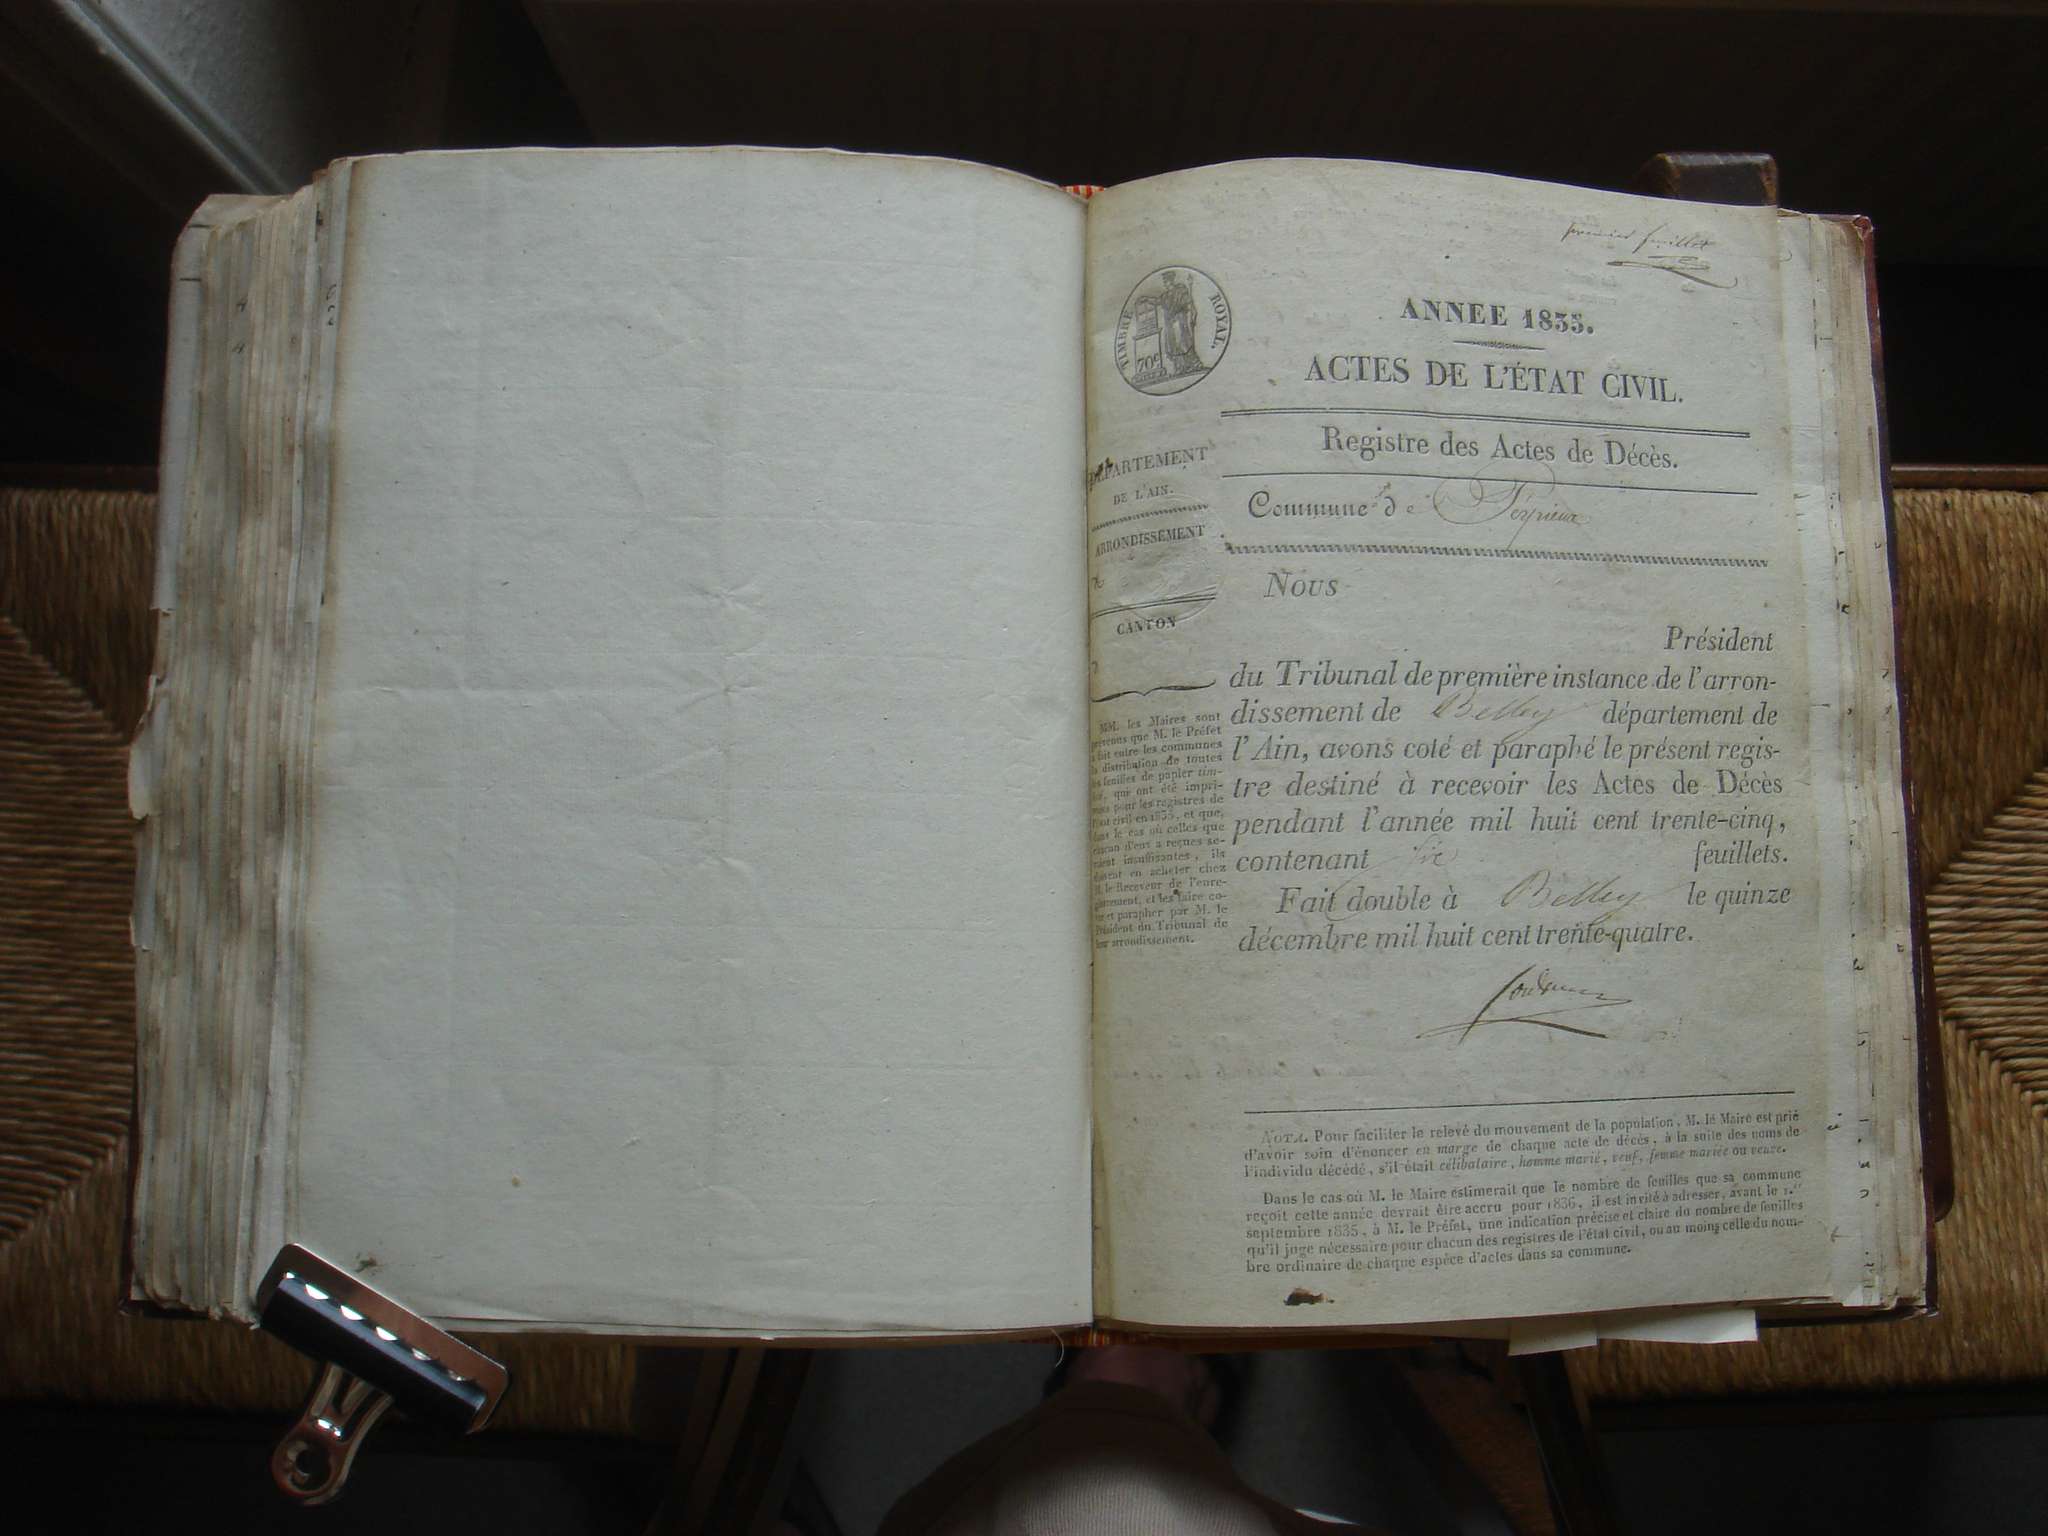 premier feuillet
TIMBRE ROYAL.
70c
ANNEE 1835.
ACTES DE L'ÉTAT CIVIL.
Registre des Actes de Décès.
Commune de
DÉPARTEMENT
DE L'AIN.
ARRONDISSEMENT
CANTON
MM. les Maires sont
prévenus que M. le Préfet
a fait entre les communes
la distribution de toutes
les feuilles de papier tim-
bré, qui ont été impri-
mées pour les registres de
l'état civil en 1835, et que,
dans le cas où celles que
chacun d'eux a reçues se-
raient insuffisantes, ils
doivent en acheter chez
M. le Receveur de l'enre-
gistrement, et les faire co-
ter et parapher par M. le
Président du Tribunal de
leur arrondissement.
Nous
Président
du Tribunal de première instance de l'arron-
dissement de Belley département de
l'Ain, avons coté et paraphé le présent regis-
tre destiné à recevoir les Actes de Décès
pendant l'année mil huit cent trente-cinq,
contenant six feuillets.
Fait double à Belley le quinze
décembre mil huit cent trente-quatre.
NOTA. Pour faciliter le relevé du mouvement de la population, M. le Maire est prié
d'avoir soin d'énoncer en marge de chaque acte de décès, à la suite des noms de
l'individu décédé, s'il était célibataire, homme marié, veuf, femme mariée ou veuve.
Dans le cas où M. le Maire estimerait que le nombre de feuilles que sa commune
reçoit cette année devrait être accru pour 1836, il est invité à adresser, avant le 1.er
septembre 1835, à M. le Préfet, une indication précise et claire du nombre de feuilles
qu'il juge nécessaire pour chacun des registres de l'état civil, ou au moins celle du nom-
bre ordinaire de chaque espèce d'actes dans sa commune.